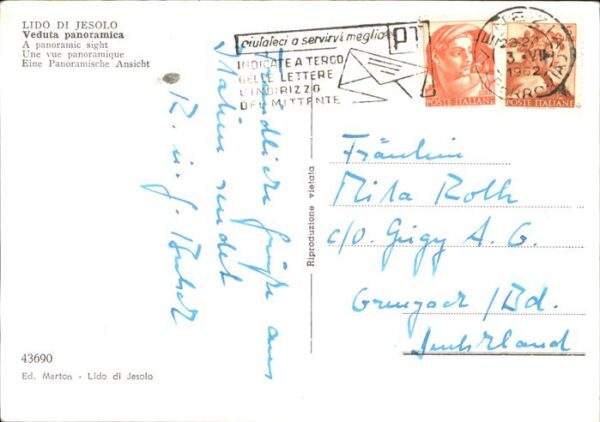 LIDO DI JESOLO
Veduta panoramica
A panoramic sight
Une vue panoramique
Eine Panoramische Ansicht
aiutateci a servirvi meglio
INDICATE A TERGO
DELLE LETTERE
L'INDIRIZZO
DEL MITTENTE
PT
POSTE ITALIANE
POSTE ITALIANE
1962
Freundliche Grüße aus
Italien sendet
R. u. J.
Riproduzione vietata
Fräulein
Rita Roth
c/o. Geigy A. G.
Grenzach / Bd.
Deutschland
43690
Ed. Marton - Lido di Jesolo